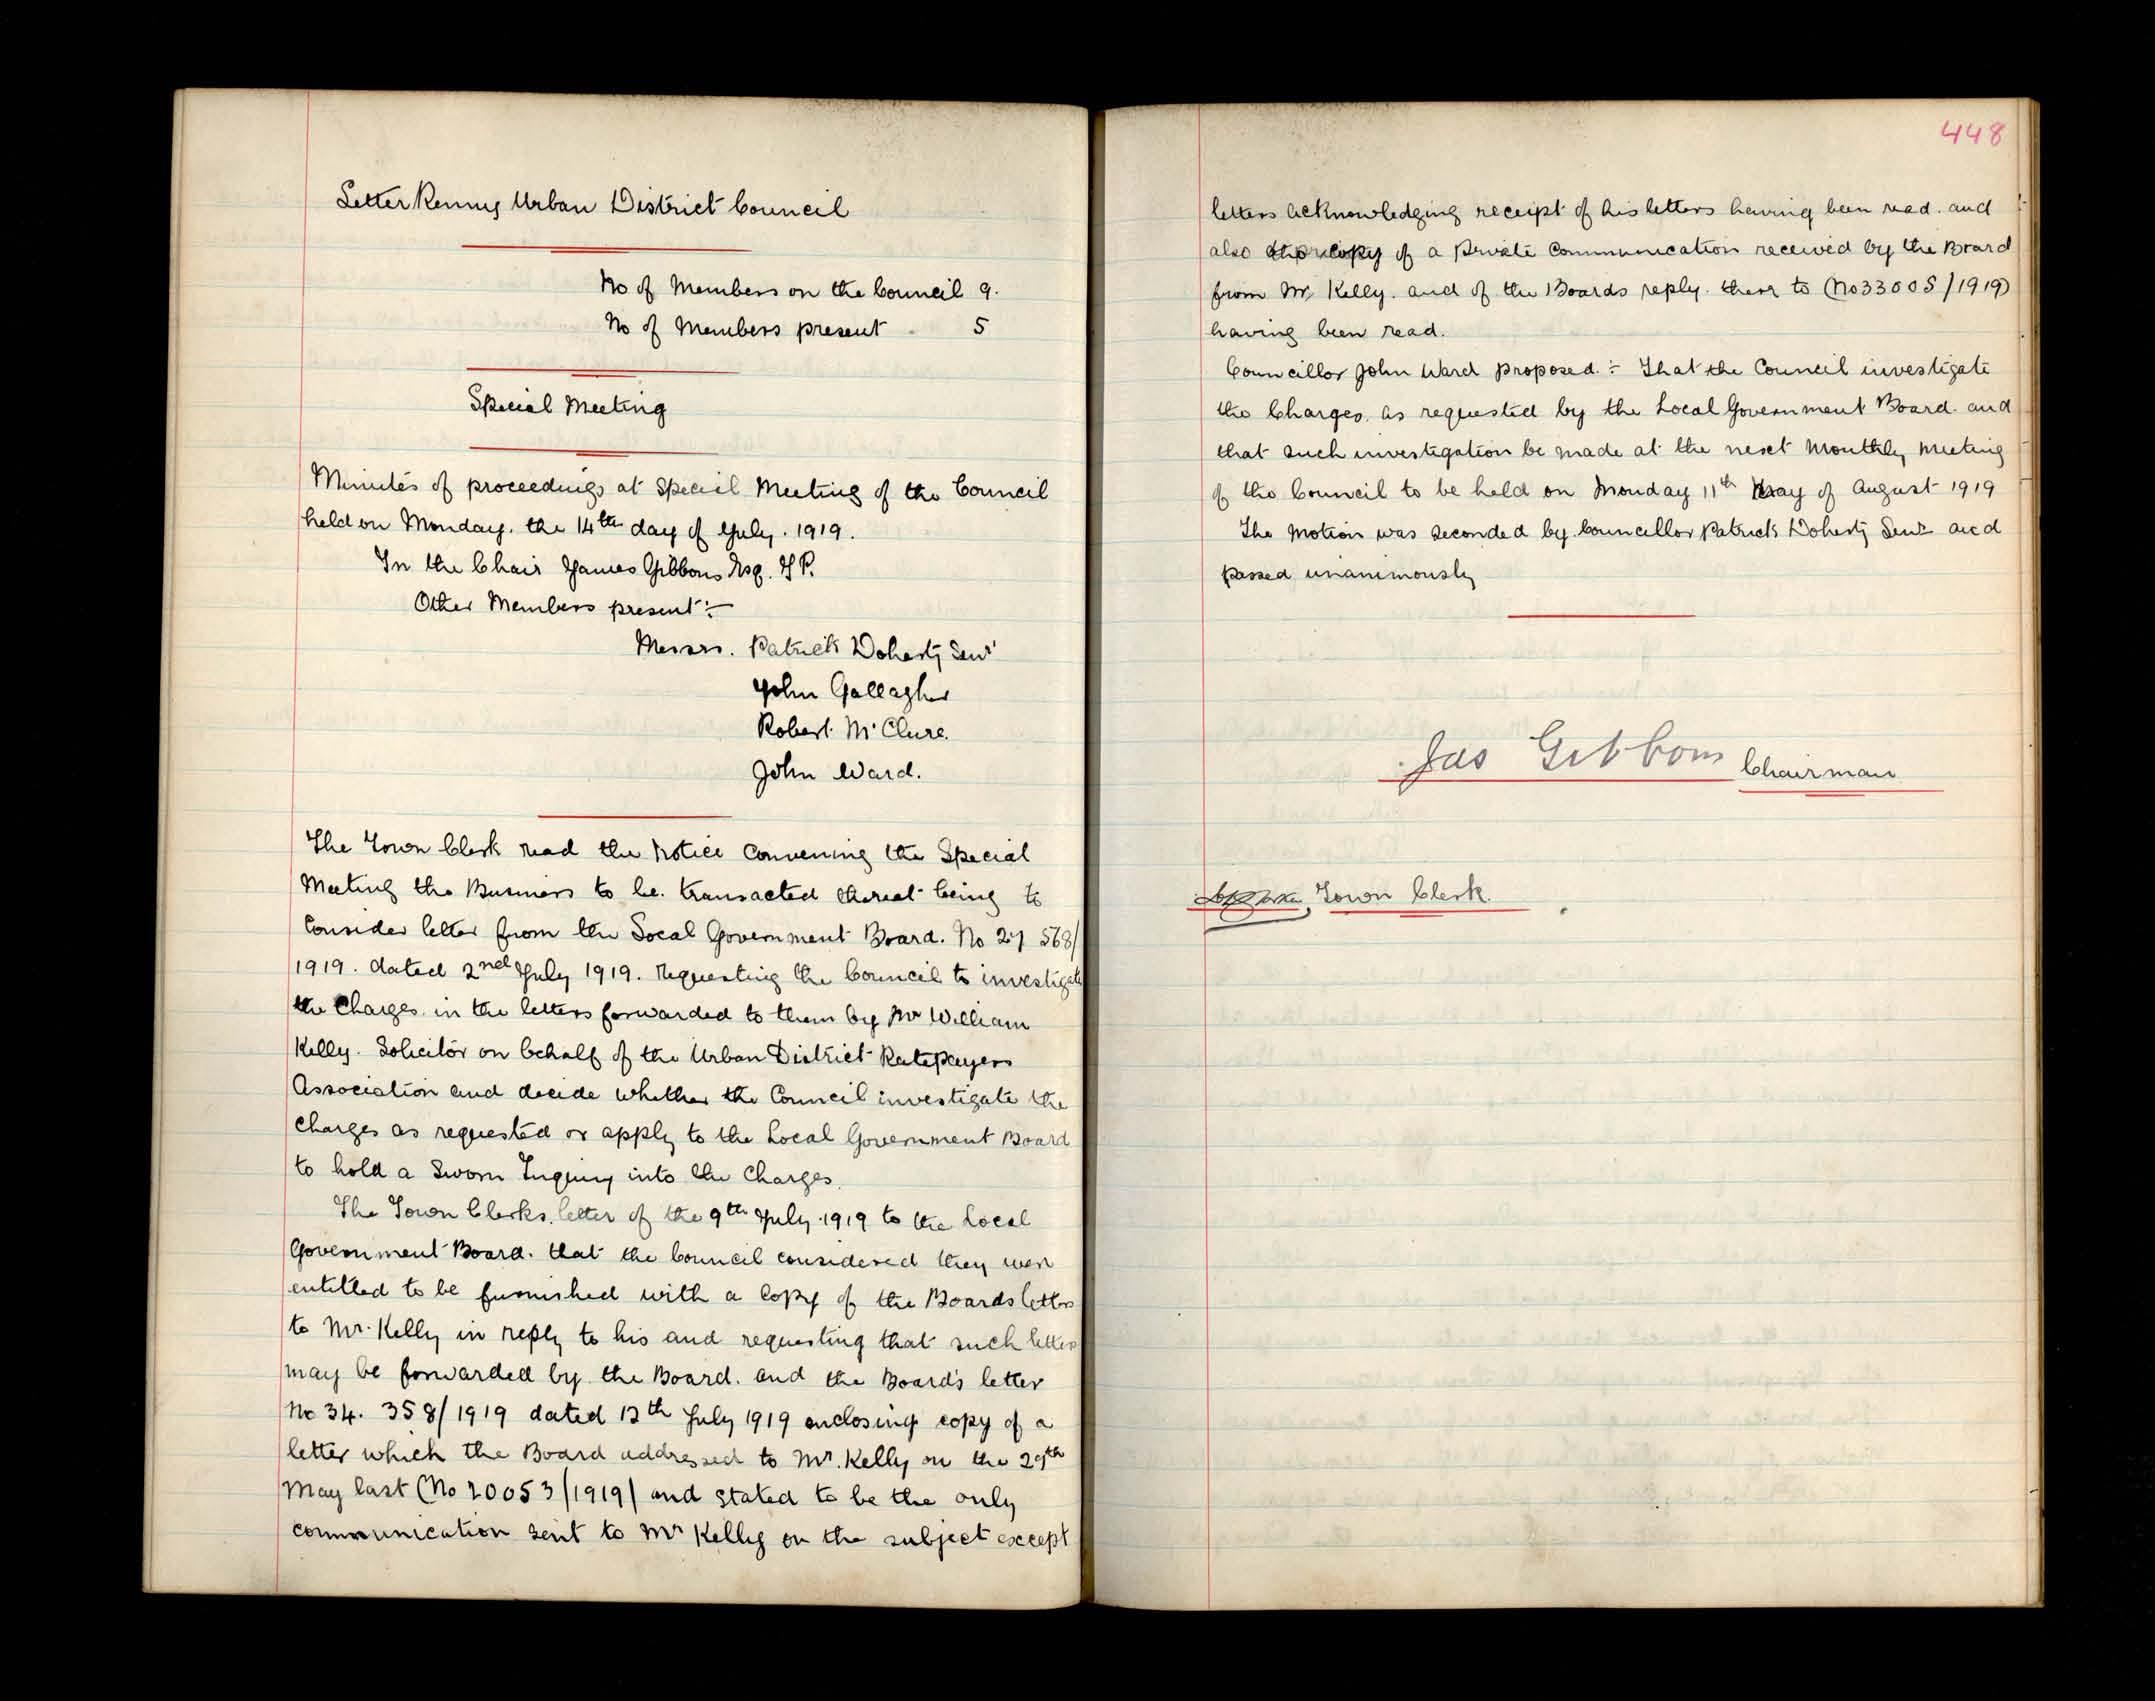 LetterKenny Urban District Council
No of Members on the Council 9.
No of Members present 5
Special Meeting
Minutes of proceedings at Special Meeting of the Council
held on Monday. the 14th day of July. 1919.
In the Chair James Gibbons Esq. J P.
Other Members present:-
Messrs. Patrick Doherty Senr
John Gallagher
Robert McClure.
John Ward.
The Town Clerk read the Notice convening the Special
Meeting the Business to be. transacted thereat being to
Consider letter from the Local Government Board. No 27 568/
1919. dated 2nd July 1919. requesting the Council to investigate
the Charges in the letters forwarded to them by Mr William
Kelly. Solicitor on behalf of the Urban District Ratepayers
Association and decide whether the Council investigate the
Charges as requested or apply to the Local Government Board
to hold a Sworn Inquiry into the Charges.
The Town Clerks letter of the 9th July 1919 to the Local
Government Board. that the Council considered they were
entitled to be furnished with a Copy of the Boards letter
to Mr. Kelly in reply to his and requesting that such letter
may be forwarded by the Board. and the Board's letter
No 34. 358/1919 dated 12th July 1919 enclosing copy of a
letter which the Board addressed to Mr. Kelly on the 29th
May last (No 20053/1919) and stated to be the only
communication sent to Mr Kelly on the subject except
448
letters acknowledging receipt of his letters having been read. and
also copy of a private communication received by the Board
from Mr Kelly. and of the Boards reply. there to (No 33005/1919)
having been read.
Councillor John Ward proposed:- That the Council investigate
the Charges. as requested by the Local Government Board. and
that such investigation be made at the next Monthly Meeting
of the Council to be held on Monday 11th day of August 1919
The Motion was seconded by Councillor Patrick Doherty Senr and
passed unanimously
Jas Gibbons Chairman
Town Clerk.